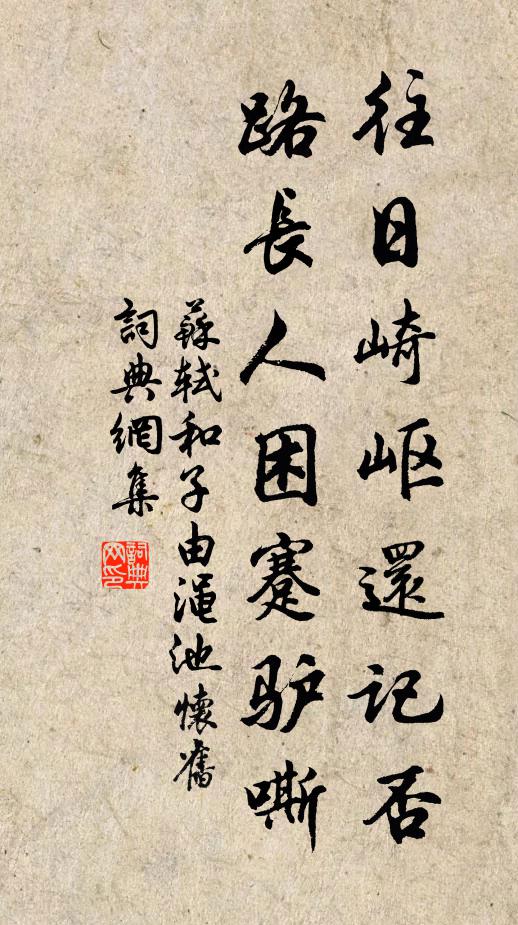 往日崎岖還记否
路長人困蹇驴嘶
蘇軾和子由渑池懷舊
詞典網集
詞典网印